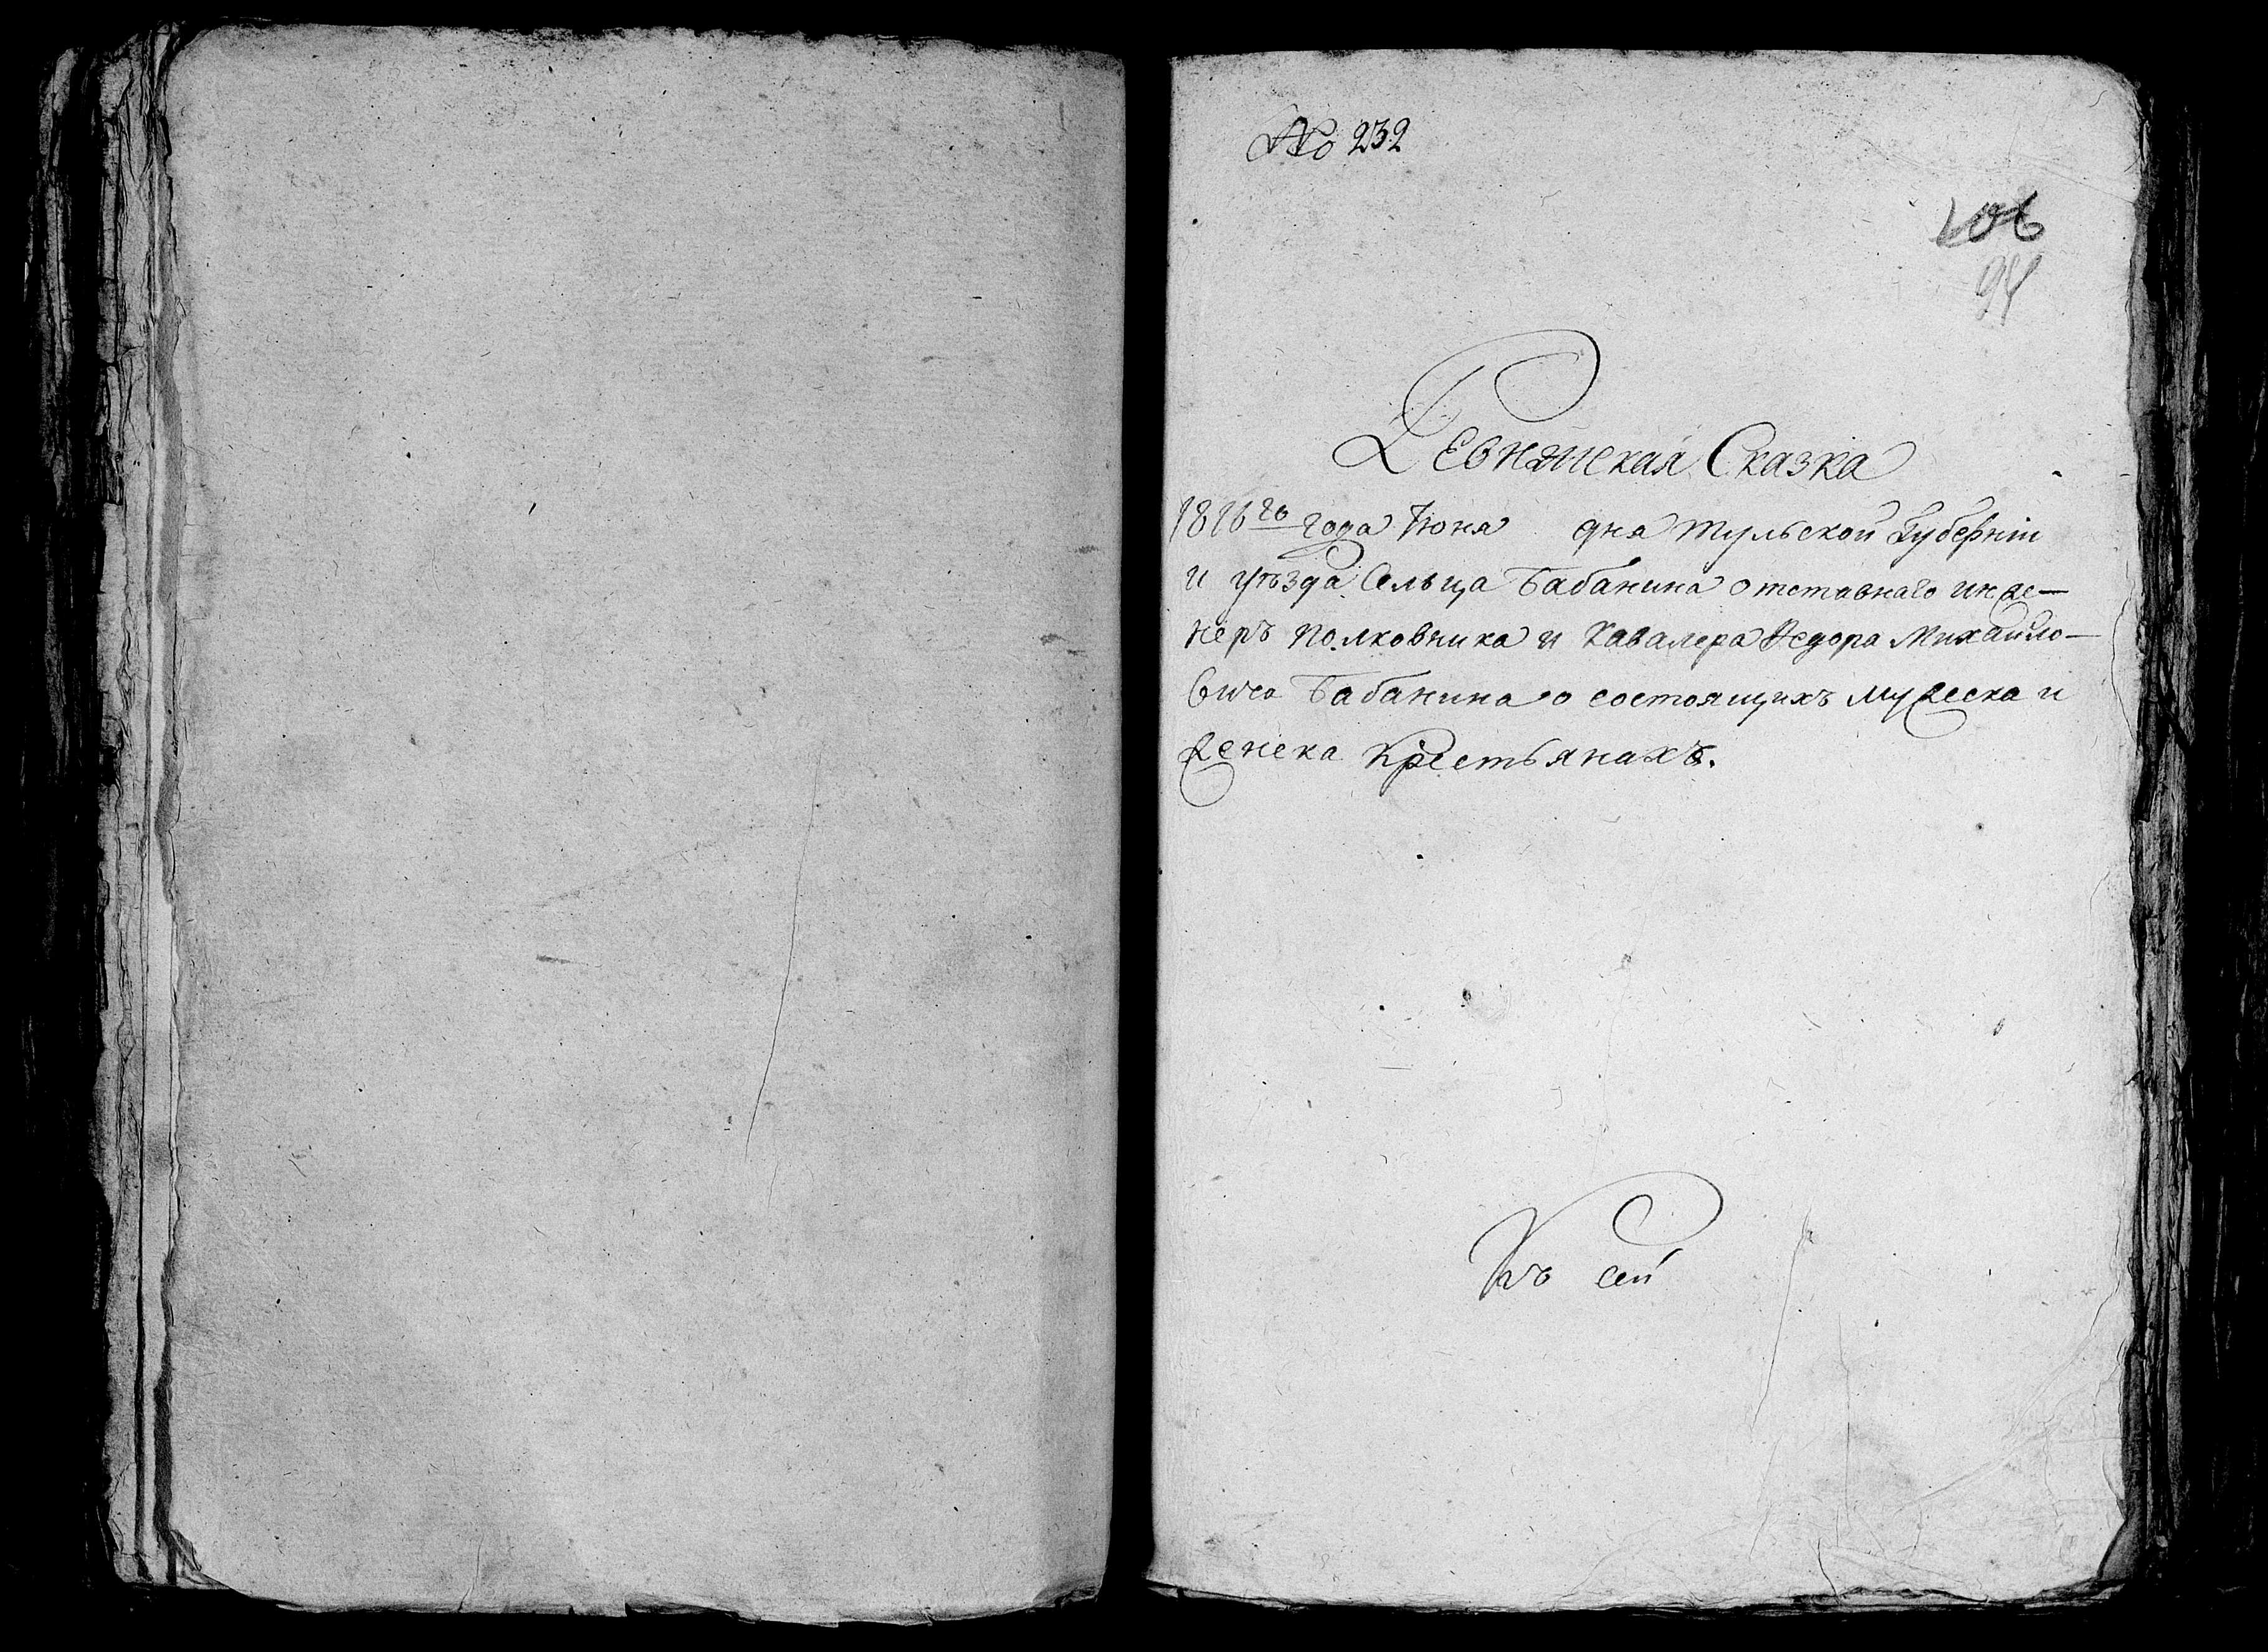 № 232
106
94
Ревижская Сказка
1816го года Июня дня Тульской Губернiи
и уѣзда Сельца Бабанина отставнаго инже-
неръ полковника и Кавалера Федора Михайло-
вича Бабанина о состоящихъ мужеска и
женска крестьянахъ.
Къ сей